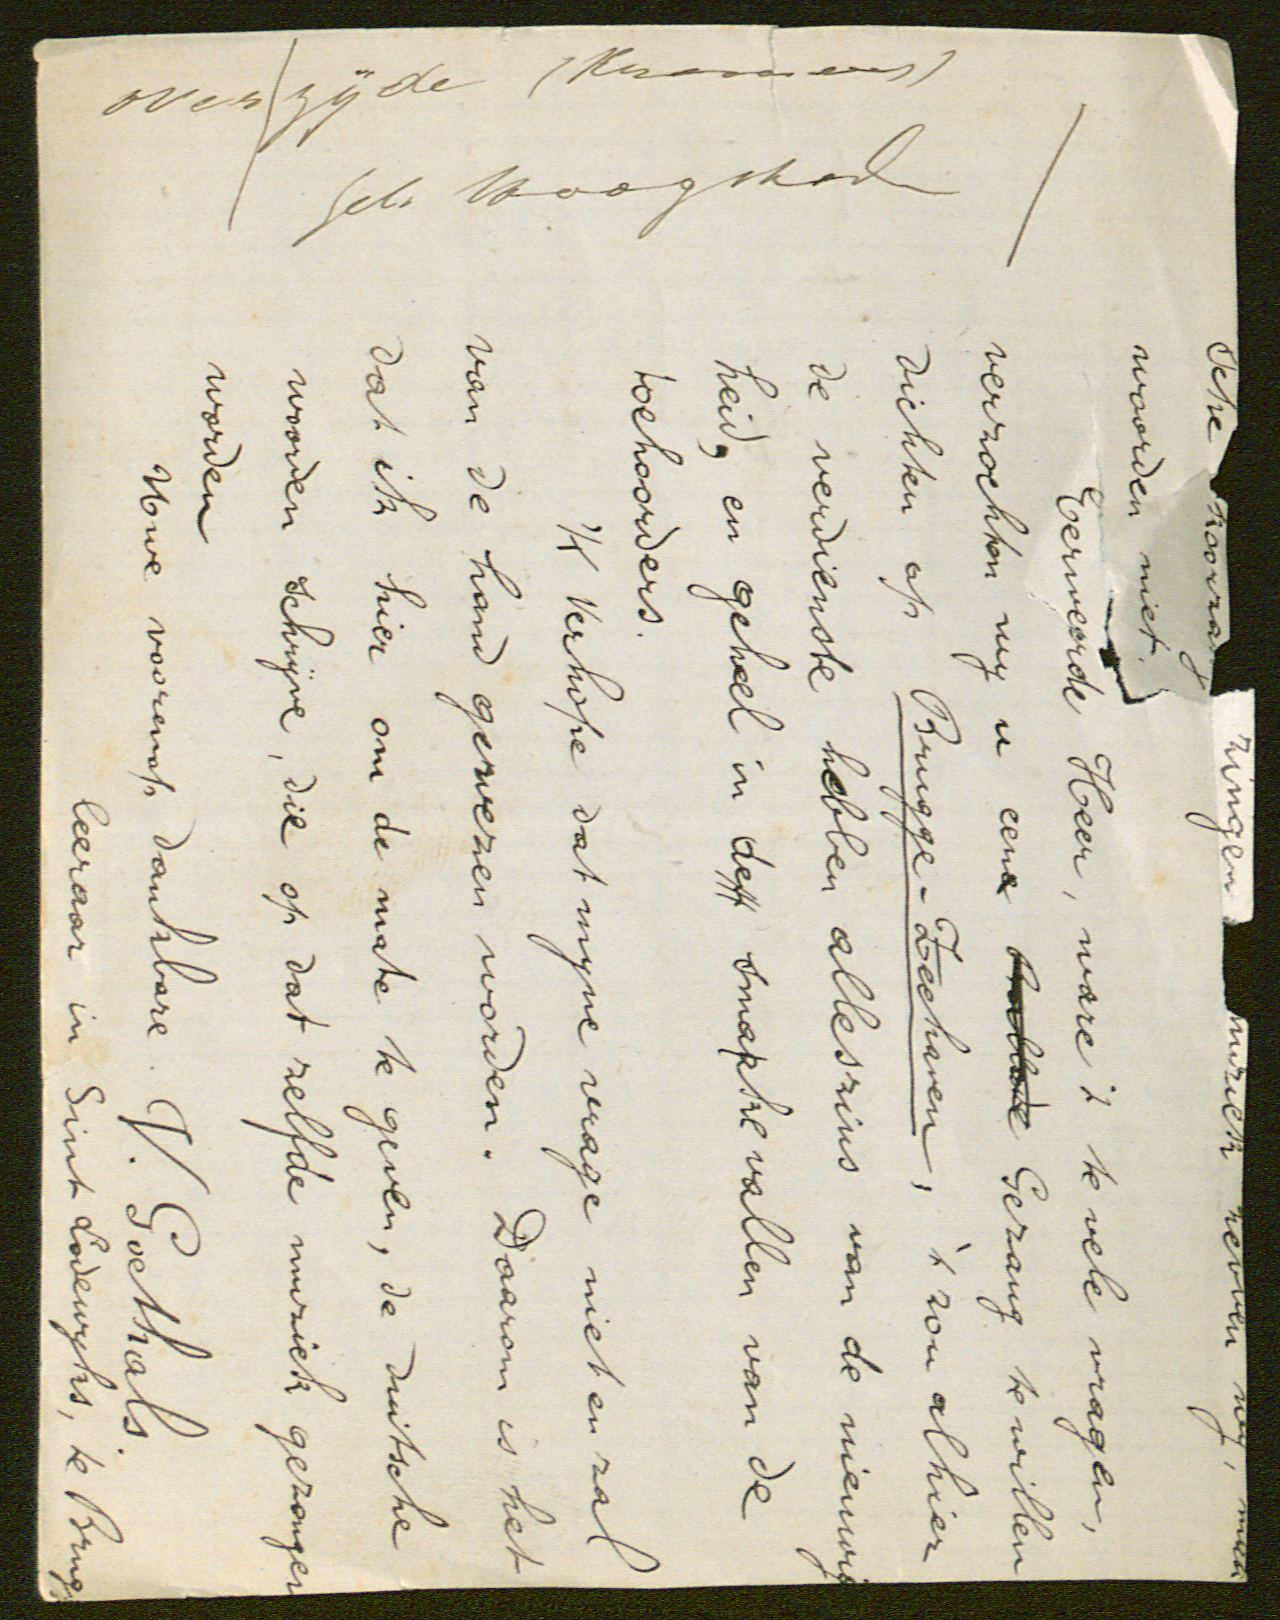 overzijde (Kramers)
sche koorzang zingen muziek hebben wy, maar
woorden niet.
Eerweerde Heer, ware 't te vele vragen,
verzochten wy u eene Gezang te willen
dichten op Brugge-Zeehaven, 't zou alhier
de verdienste hebben alleszins van de nieuwig
heid, en geheel in den smaak vallen van de
toehoorders.
'K Verhope dat myne vrage niet en zal
van de hand gewezen worden. Daarom is het
dat ik hier om de mate te geven, de duitsche
woorden schryve, die op dat zelfde muziek gezongen
worden
Uwe voorenop dankbare. V. Goethals.
leeraar in Sint Lodewyks, te Brug